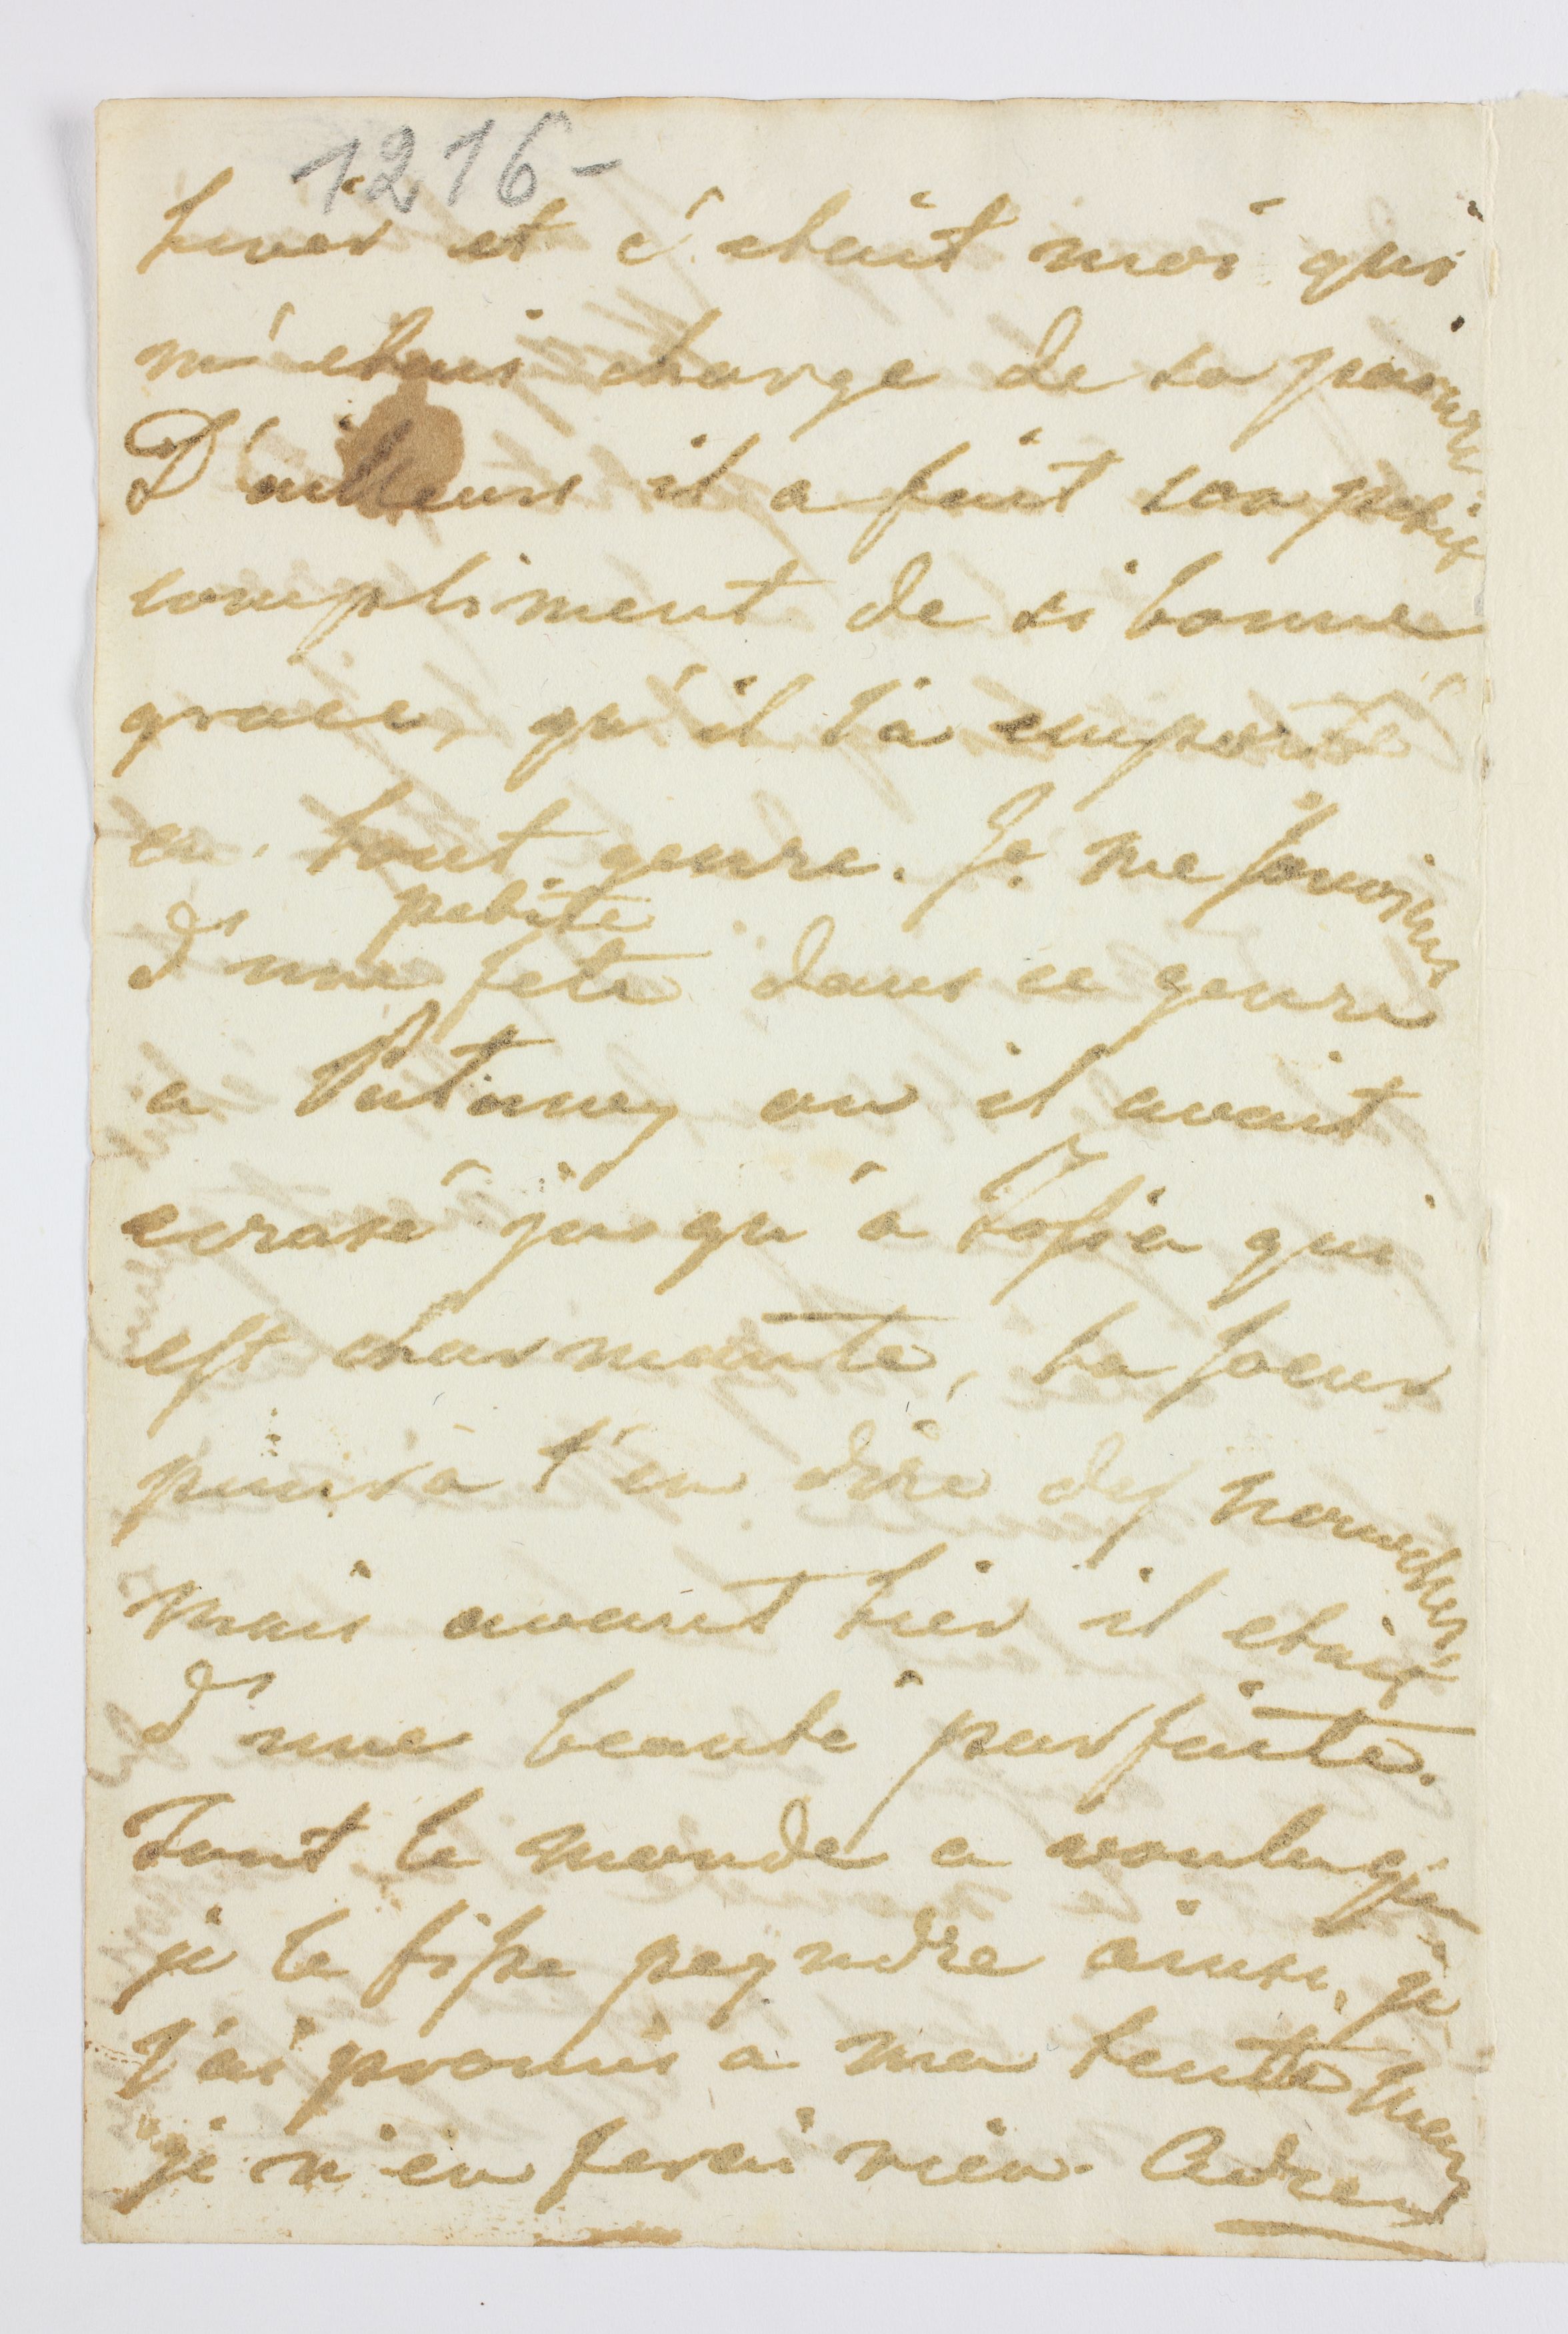 1216-
hiver et c'etait moi qui
m'etais charge de sa parure.
D'ailleurs il a fait son petit
compliment de si bonne
grace, qu'il l'a emporté
en tout genre. Je me souviens
d'une petite fete dans ce genre
a Putnney ou il avait
ecrasé jusqu'à Sofia qui
est charmante, ta soeur
poura t'en dire des nouvelles
Mais avant hier il etait
d'une beaute parfaite.
Tout le monde a voulu que
je le fisse peyndre ainsi,
j'ai promis a ma tante mais
je n'en ferai rien. Adieu